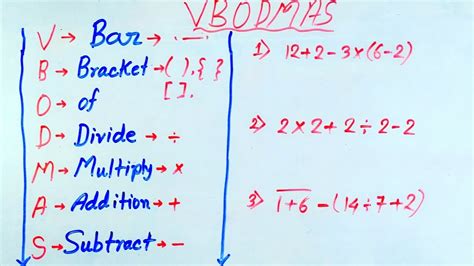 VBODMAS
V → Bar → —
B → Bracket → ( ), { }
[ ].
O → of
D → Divide → ÷
M → Multiply → ×
A → Addition → +
S → Subtract → −
1) 12+2-3×(6-2)
2) 2×2+2÷2-2
3) 1+6 -(14÷7+2)